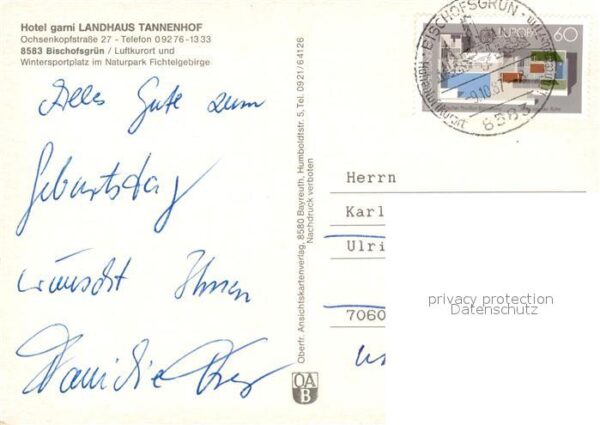 Hotel garni LANDHAUS TANNENHOF
Ochsenkopfstraße 27 - Telefon 09276-1333
8583 Bischofsgrün / Luftkurort und
Wintersportplatz im Naturpark Fichtelgebirge
Alles Gute zum
Geburtstag
wünscht Ihnen
Familie
Oberfr. Ansichtskartenverlag, 8580 Bayreuth, Humboldtstr. 5, Tel. 0921/64126
Nachdruck verboten
OA
B
BISCHOFSGRÜN
-9.10.87
8583
EUROPA
60
Herrn
Karl
Ulri
7060
privacy protection
Datenschutz